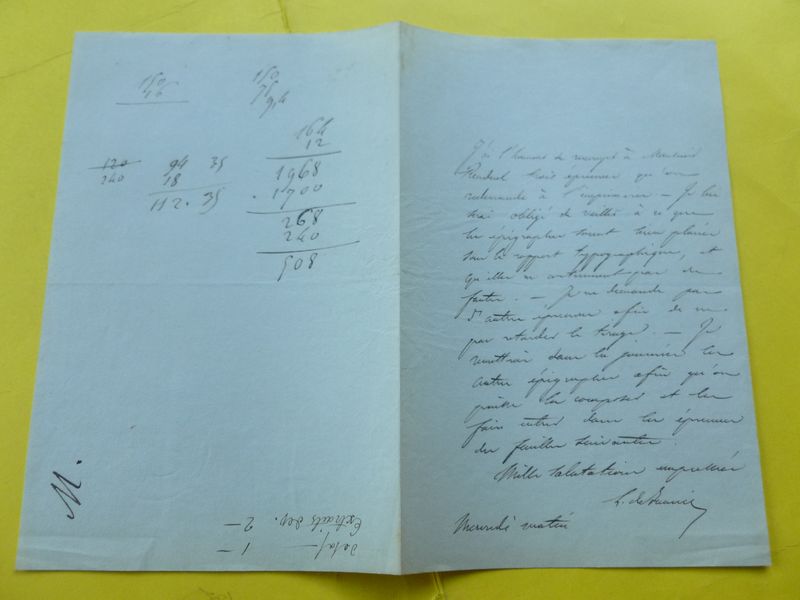 150
16
150
75
94
164
12
1968
1700
268
240
508
120
240
94 35
18
112.35
M.
total — 1 —
Extraits dep. 2 —
J'ai l'honneur de renvoyer à Monsieur
trois épreuves qu'on
redemande à l'imprimerie — Je lui
serai obligé de veiller à ce que
les épigraphes soient bien placées
sous le rapport typographique, et
qu'elles ne contiennent pas de
fautes. — Je ne demande pas
d'autre épreuve afin de ne
pas retarder le tirage. — Je
remettrai dans la journée les
autres épigraphes afin qu'on
puisse les composer et les
faire entrer dans les épreuves
des feuilles suivantes.
Mille salutations empressées
Mercredi matin